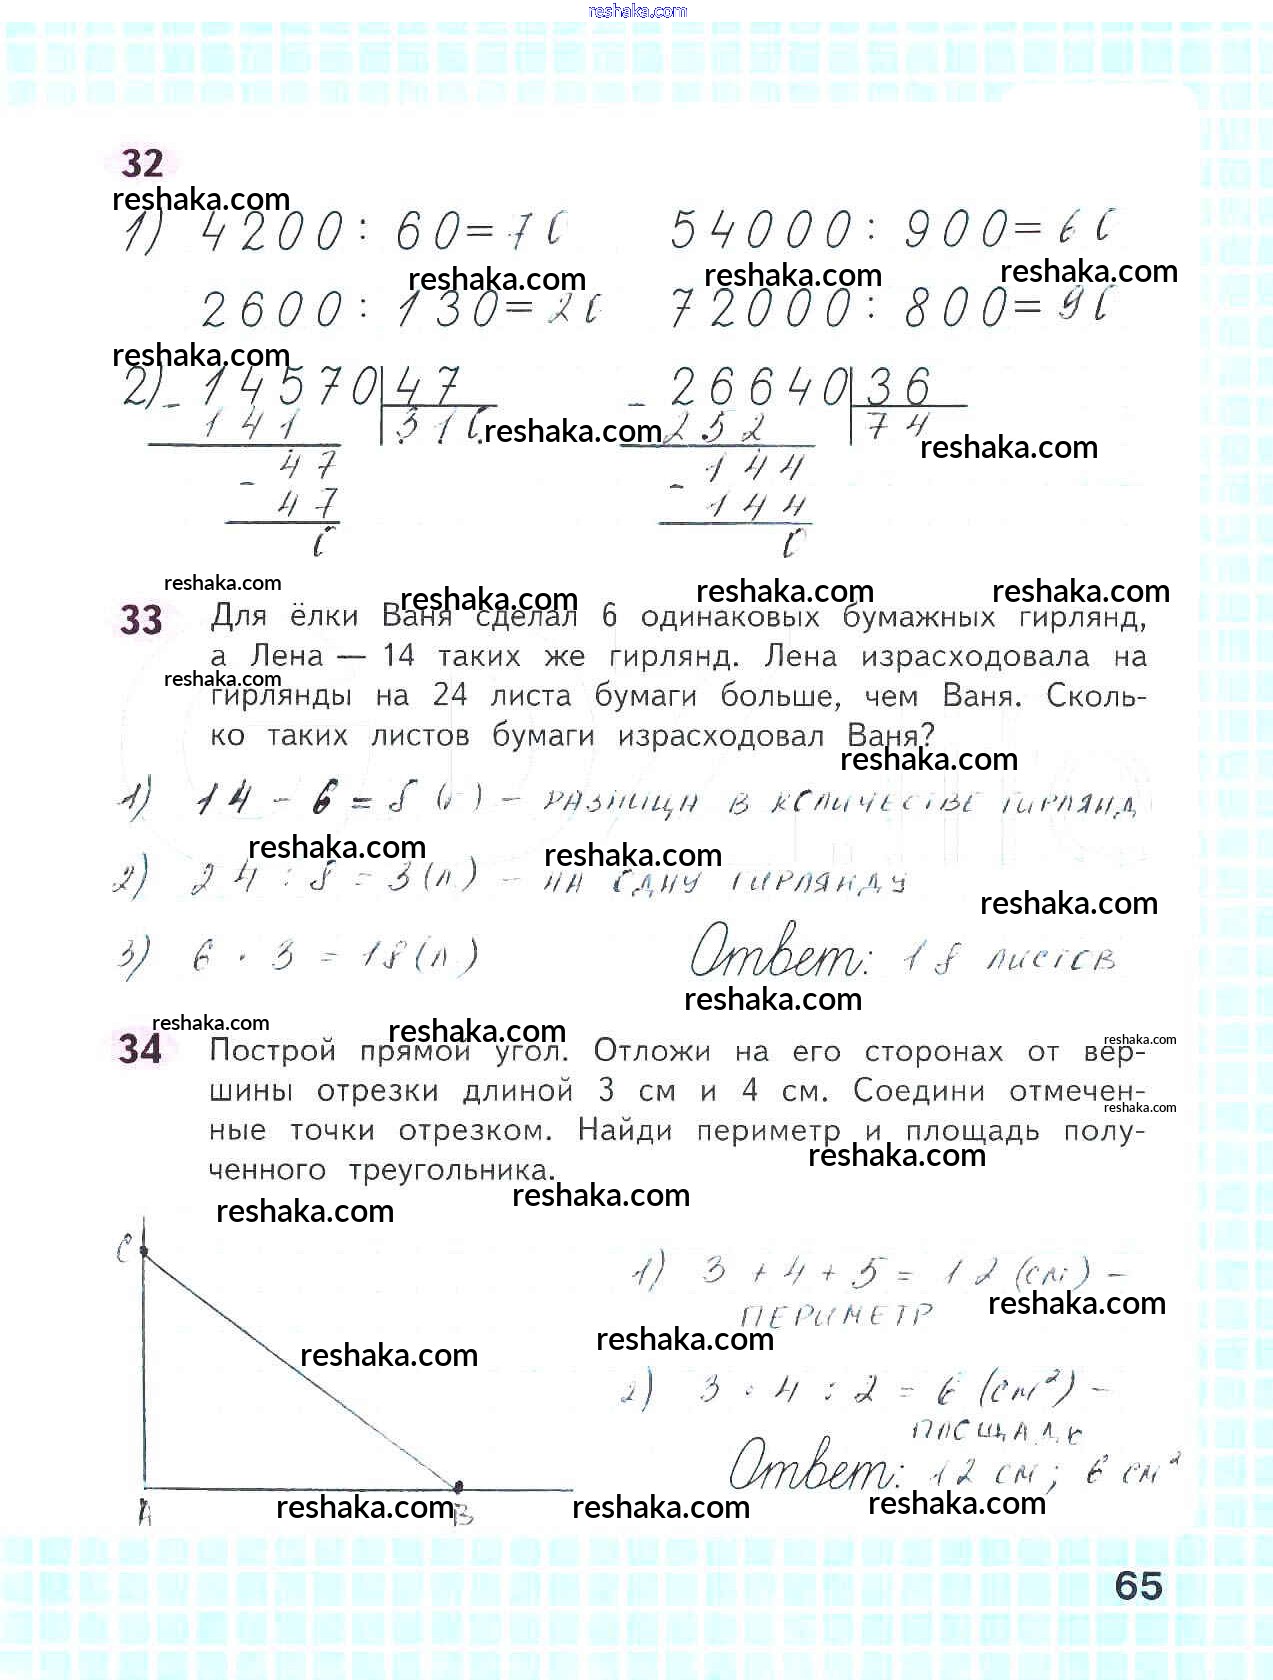 reshaka.com
32
reshaka.com
1) 4200 : 60 = 70 54000 : 900 = 60
reshaka.com reshaka.com reshaka.com
2600 : 130 = 20 72000 : 800 = 90
reshaka.com
2) - 14570 | 47 - 26640 | 36
141 310 252 74
reshaka.com reshaka.com
- 47 - 144
47 144
0 0
reshaka.com reshaka.com reshaka.com reshaka.com
33 Для ёлки Ваня сделал 6 одинаковых бумажных гирлянд,
а Лена — 14 таких же гирлянд. Лена израсходовала на
reshaka.com
гирлянды на 24 листа бумаги больше, чем Ваня. Сколь-
ко таких листов бумаги израсходовал Ваня?
reshaka.com
1) 14 - 6 = 8 (г) - разница в количестве гирлянд
reshaka.com reshaka.com
2) 24 : 8 = 3 (л) - на одну гирлянду
reshaka.com
3) 6 · 3 = 18 (л) Ответ: 18 листов
reshaka.com
reshaka.com reshaka.com reshaka.com
34 Построй прямой угол. Отложи на его сторонах от вер-
шины отрезки длиной 3 см и 4 см. Соедини отмечен-
reshaka.com
ные точки отрезком. Найди периметр и площадь полу-
reshaka.com
ченного треугольника.
reshaka.com reshaka.com
C
1) 3 + 4 + 5 = 12 (см) -
периметр
reshaka.com
reshaka.com reshaka.com
2) 3 · 4 : 2 = 6 (см²) -
площадь
Ответ: 12 см; 6 см²
A B
reshaka.com reshaka.com reshaka.com
65